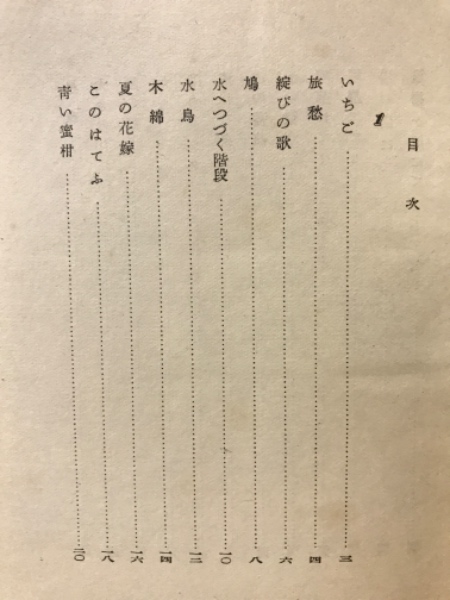 目次
1
いちご……三
旅愁……四
綻びの歌……六
鳩……八
水へつづく階段……一〇
水鳥……一二
木綿……一四
夏の花嫁……一六
このはてふ……一八
青い蜜柑……二〇